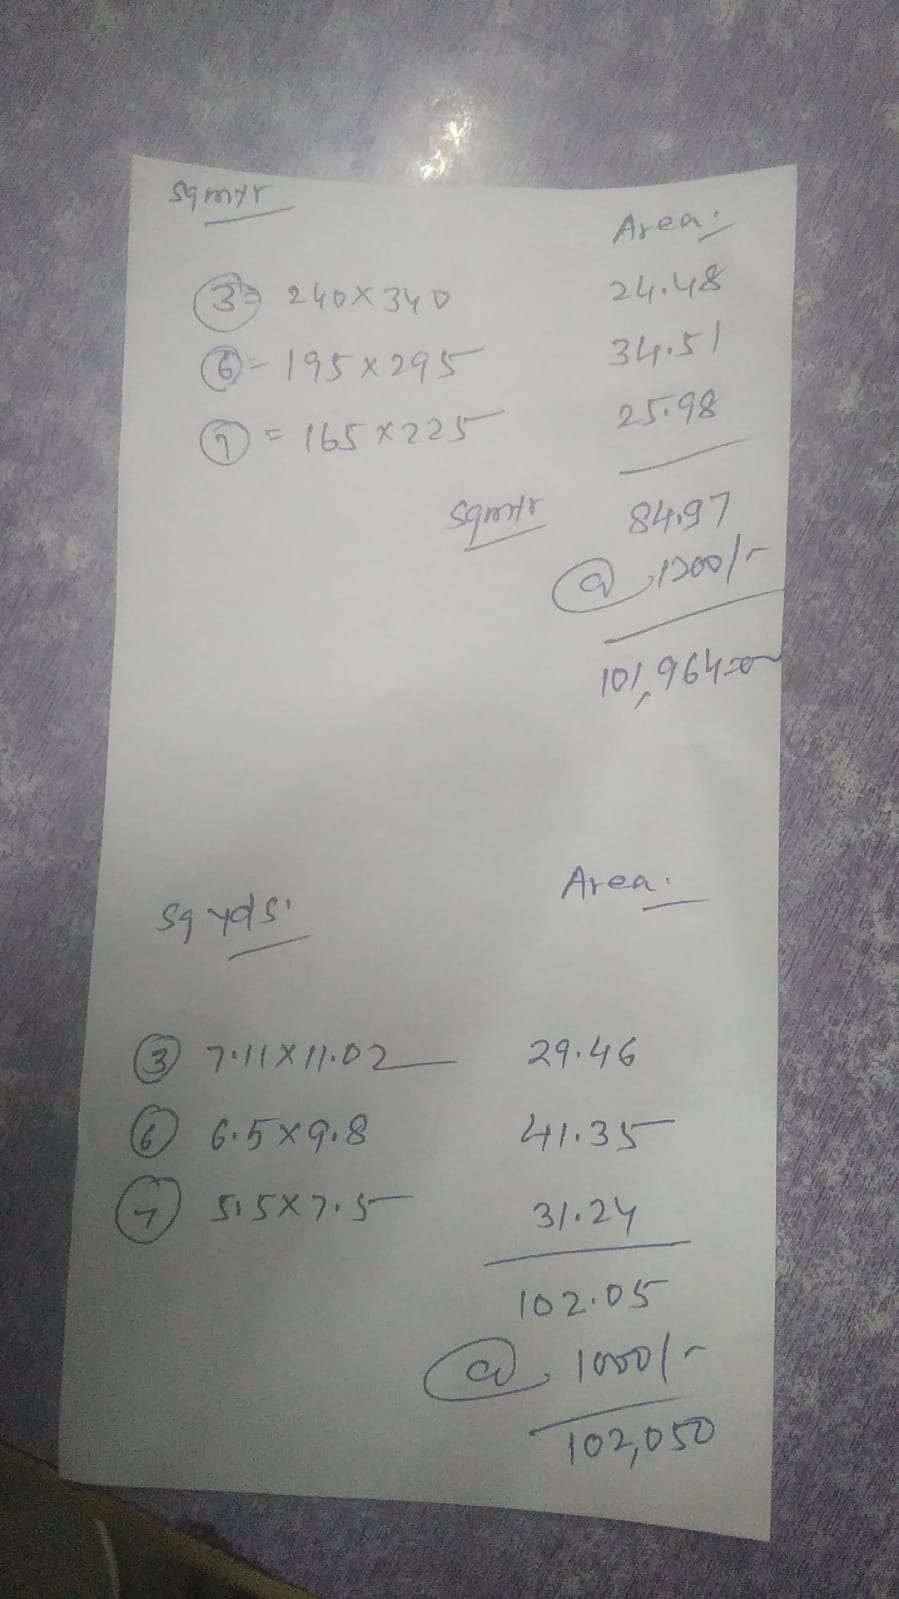 Sqmtr
Area.
③= 240X340 24.48
⑥= 195x295 34.51
⑦ = 165x225 25.98
Sqmtr 84.97
@ 1200/-
101,964=00
Sq yds.
Area.
③ 7.11X11.02 29.46
⑥ 6.5x9.8 41.35
⑦ 5.5x7.5 31.24
102.05
@ 1000/-
102,050